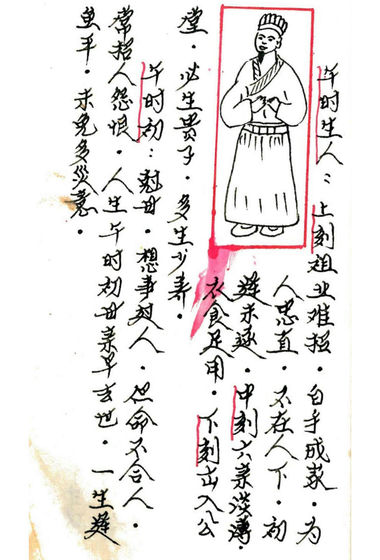 午时生人：上刻祖业难招。白手成家。为
人忠直。不在人下。初
难未遂。中刻六亲淡薄。
衣食足用。下刻出入公
堂。必生贵子。多生少寿。
午时初：克母。想事超人。但命不合人。
常招人怨恨。人生午时初母亲早去世。一生
鱼平。未免多災意。